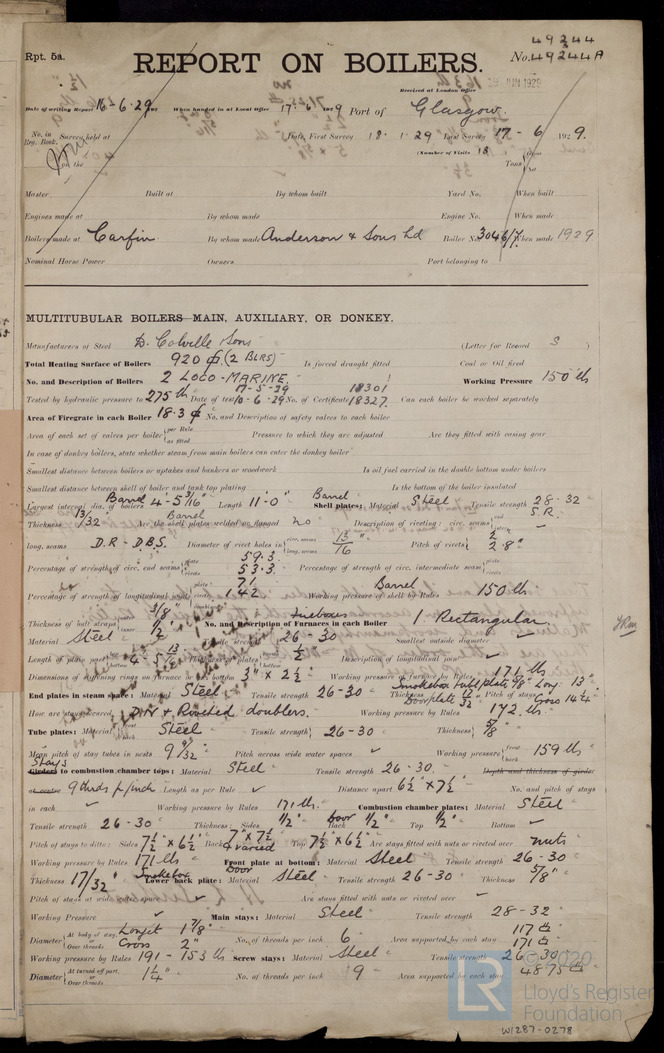 49244
Rpt. 5a. REPORT ON BOILERS. No. 49244A
Received at London Office JUN 1929
Date of writing Report 16-6-29 When handed in at Local Office 17-6-1929 Port of Glasgow
No. in Reg. Book. Survey held at Date, First Survey 18-1-29 Last Survey 17-6 1929.
on the (Number of Visits 18 ) Tons
Master Built at By whom built Yard No. When built
Engines made at By whom made Engine No. When made
Boilers made at Carfin By whom made Anderson & Sons Ld Boiler No. 3046/7 When made 1929
Nominal Horse Power Owners Port belonging to
MULTITUBULAR BOILERS MAIN, AUXILIARY, OR DONKEY.
Manufacturers of Steel D. Colville Sons (Letter for Record S )
Total Heating Surface of Boilers 920 (2 BLRS) Is forced draught fitted Coal or Oil fired
No. and Description of Boilers 2 LOCO-MARINE Working Pressure 150 lb
Tested by hydraulic pressure to 275 lb Date of test 17-5-29 10-6-29 No. of Certificate 18301 18327. Can each boiler be worked separately
Area of Firegrate in each Boiler 18.3 No. and Description of safety valves to each boiler
Area of each set of valves per boiler per Rule as fitted Pressure to which they are adjusted Are they fitted with easing gear
In case of donkey boilers, state whether steam from main boilers can enter the donkey boiler
Smallest distance between boilers or uptakes and bunkers or woodwork Is oil fuel carried in the double bottom under boilers
Smallest distance between shell of boiler and tank top plating Is the bottom of the boiler insulated
Largest internal dia. of boilers Barrel 4'-5 3/16" Length 11'-0" Shell plates: Material Barrel Steel Tensile strength 28-32
Thickness 13/32 Are the shell plates welded or flanged Barrel no Description of riveting: circ. seams end S.R. inter ✓
long. seams D.R-D.B.S. Diameter of rivet holes in circ. seams long. seams 13/16" Pitch of rivets 2" 2.8"
Percentage of strength of circ. end seams plate 59.3 rivets 53.3 Percentage of strength of circ. intermediate seam plate rivets
Percentage of strength of longitudinal joint plate 71 rivets 142 Working pressure of shell by Rules Barrel 150 lb
Thickness of butt straps outer 3/8" inner 1/2" No. and Description of Furnaces in each Boiler 1 Rectangular
Material Steel Tensile strength 26-30 Smallest outside diameter
Length of plain part Thickness of plates 1/2" Description of longitudinal joint ✓
Dimensions of stiffening rings on furnace or c.c. bottom 3" x 2 1/2" Working pressure of furnace by Rules 171 lb
End plates in steam space: Material Steel Tensile strength 26-30 Thickness Doorplate Pitch of stays Long 13" Cross 14 1/4
How are stays secured D.N & Riveted doublers. Working pressure by Rules 172 lb
Tube plates: Material front back Steel Tensile strength 26-30 Thickness 5/8"
Mean pitch of stay tubes in nests 9 9/32" Pitch across wide water spaces ✓ Working pressure front back 159 lb
Stays Girders to combustion chamber tops: Material Steel Tensile strength 26-30 Depth and thickness of girder
at centre 9 thrds p/inch Length as per Rule ✓ Distance apart 6 1/2" x 7 1/2" No. and pitch of stays
in each ✓ Working pressure by Rules 171 lb. Combustion chamber plates: Material Steel
Tensile strength 26-30 Thickness: Sides 1/2" Back Door 1/2" Top 1/2" Bottom ✓
Pitch of stays to ditto: Sides 7 1/2" x 6 1/2" Back 7" x 7 1/2" & varied Top 7 1/2" x 6 1/2" Are stays fitted with nuts or riveted over nuts
Working pressure by Rules 171 lb Front plate at bottom: Material Steel Tensile strength 26-30
Thickness 17/32" Smokebox Lower back plate: Door Material Steel Tensile strength 26-30 Thickness 5/8"
Pitch of stays at wide water space ✓ Are stays fitted with nuts or riveted over ✓
Working Pressure ✓ Main stays: Material Steel Tensile strength 28-32
Diameter At body of stay, or Over threads Longit 1 7/8" Cross 2" No. of threads per inch 6 Area supported by each stay 117 171
Working pressure by Rules 191-153 lb Screw stays: Material Steel Tensile strength 26-30
Diameter At turned off part, or Over threads 1 1/4" No. of threads per inch 9 Area supported by each stay 48.75
© 2020
LR
Lloyd's Register
Foundation
W1287-0278